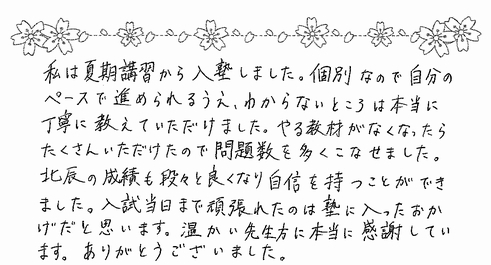 私は夏期講習から入塾しました。個別なので自分の
ペースで進められるうえ、わからないところは本当に
丁寧に教えていただけました。やる教材がなくなったら
たくさんいただけたので問題数を多くこなせました。
北辰の成績も段々と良くなり自信を持つことができ
ました。入試当日まで頑張れたのは塾に入ったおか
げだと思います。温かい先生方に本当に感謝してい
ます。ありがとうございました。